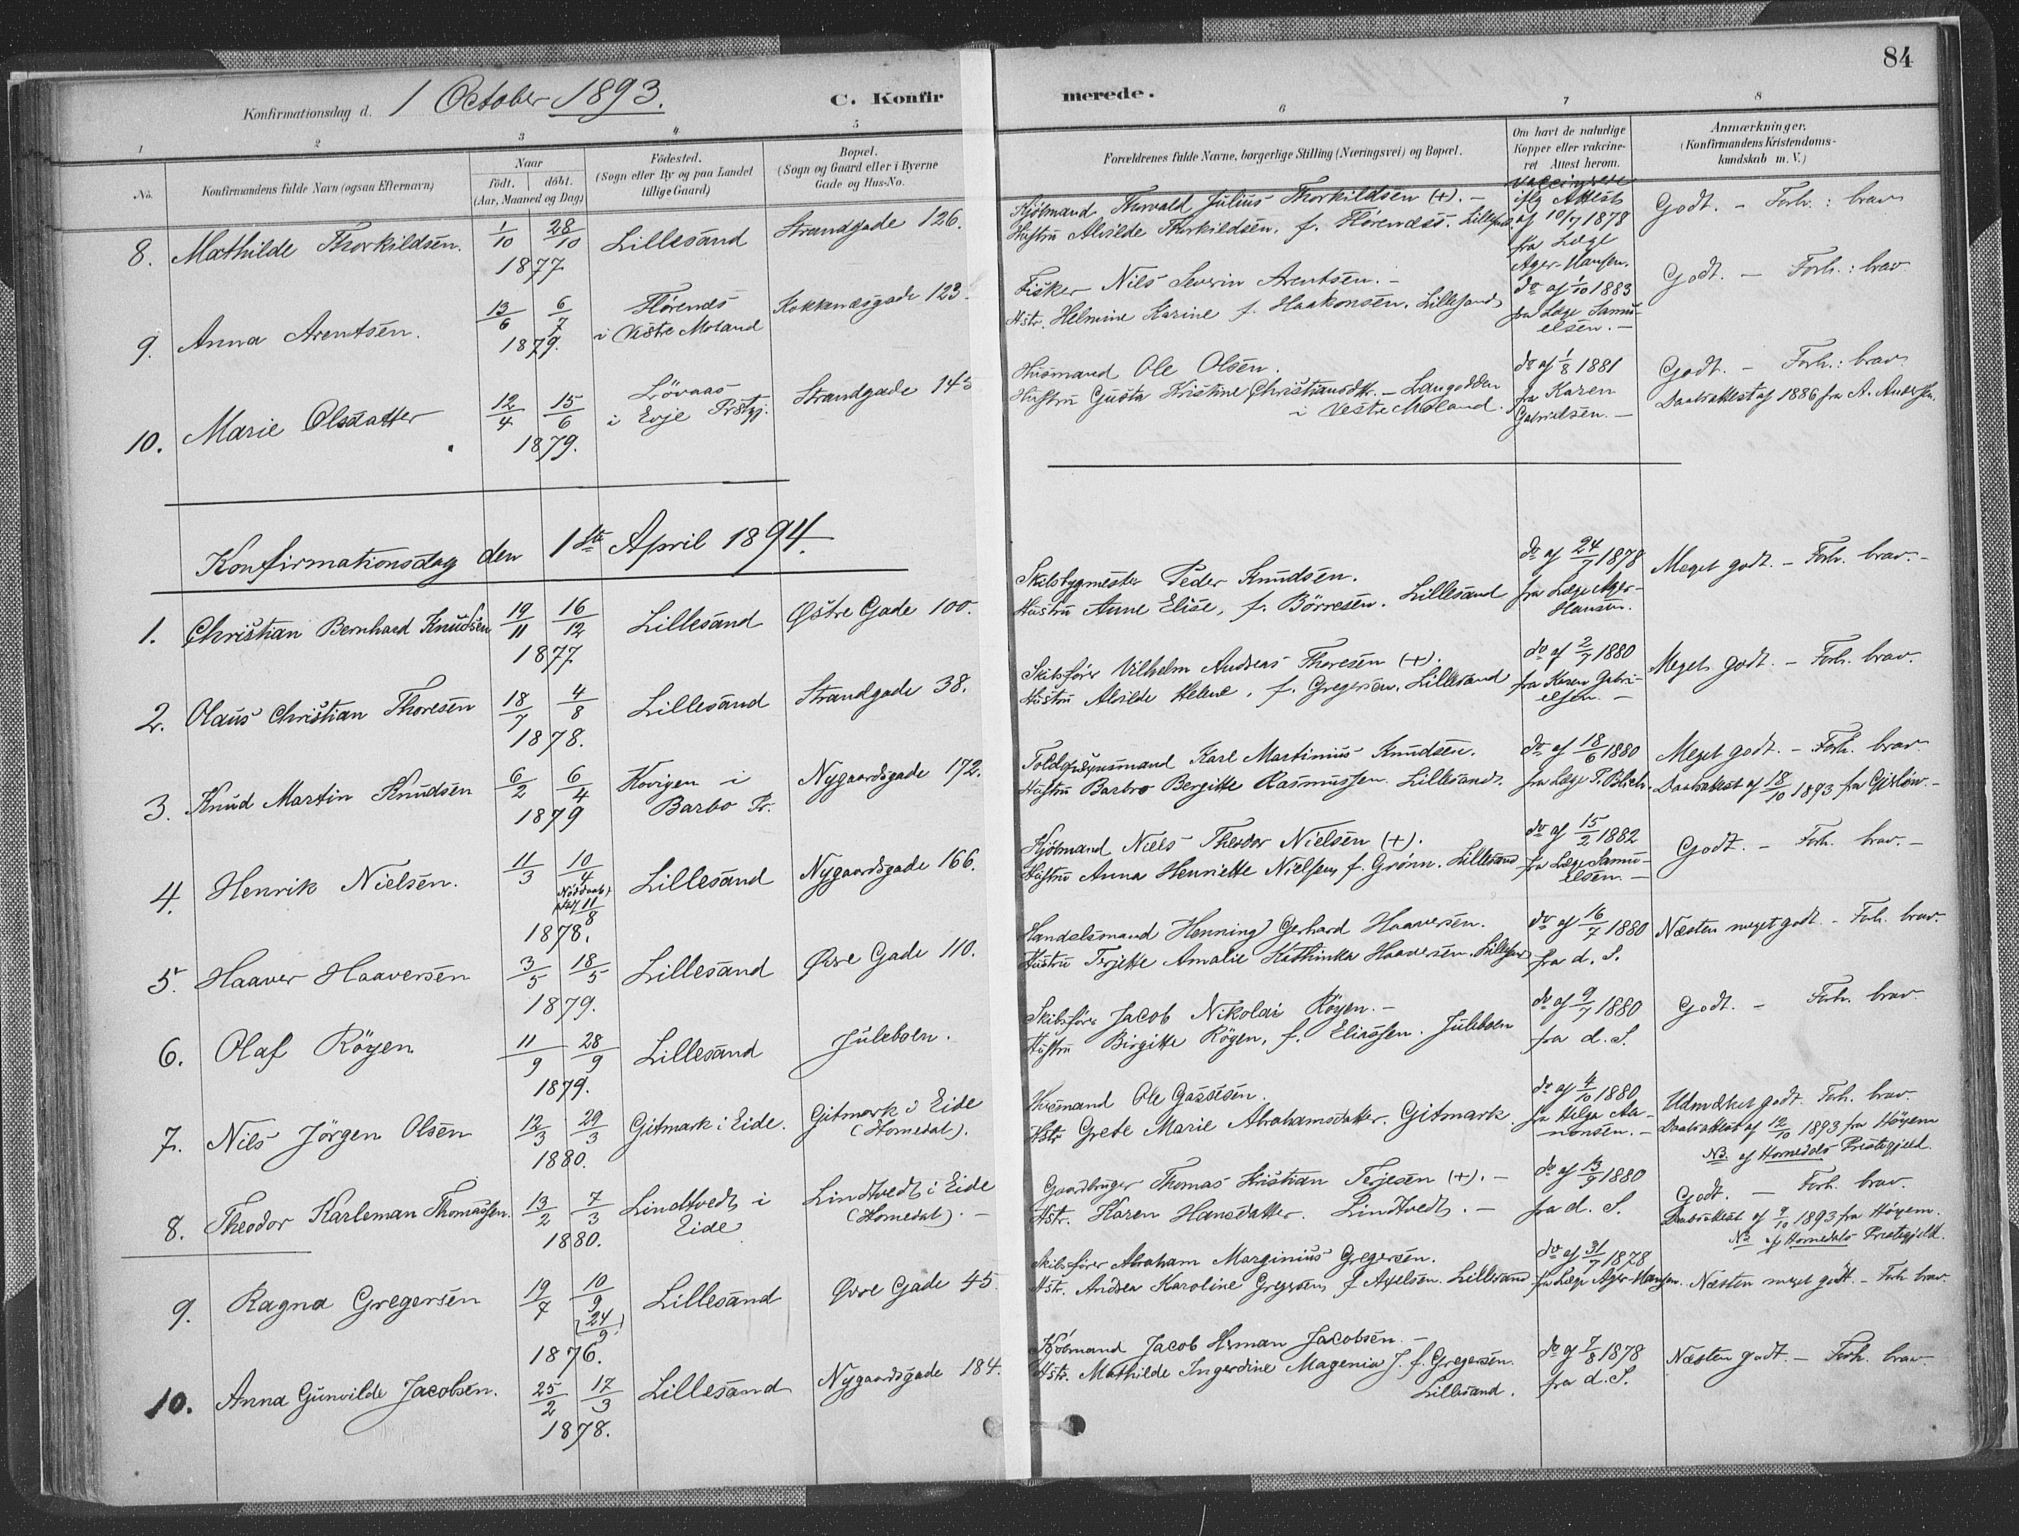 84
Konfirmationsdag d. 1 October 1893.
C. Konfirmerede.
1 2 3 4 5 6 7 8
No.
Konfirmandens fulde Navn (ogsaa Efternavn)
Naar
født. døbt.
(Aar, Maaned og Dag)
Fødested.
(Sogn eller By og paa Landet
tillige Gaard)
Bopæl.
(Sogn og Gaard eller i Byerne
Gade og Hus-No.
Forældrenes fulde Navne, borgerlige Stilling (Næringsvei) og Bopæl.
Om havt de naturlige
Kopper eller vakcine-
ret Attest herom.
Anmærkninger.
(Konfirmandens Kristendoms-
kundskab m. V.)
8. Mathilde Thorkildsen. 1/10 28/10 1877 Lillesand Strandgade 126.
Kjöbmand Thorvald Julius Thorkildsen (+). –
Hustru Alvilde Thorkildsen, f. Hørendes. Lillesand.
vaccineret
iflg Attest
af 10/7 1878
fra Læge
Ager-Hansen.
Godt. – Forh.: brav
9. Anna Arentsen. 13/6 6/7 1879. i Vestre Moland Kokkenæsgade 123.
Fisker Nils Severin Arentsen. –
Hstr. Helmine Karine f. Haakonsen. Lillesand
do af 1/10 1883
fra Læge Samu-
elsen. –
Godt. – Forh.: brav
10. Marie Olsdatter 12/4 15/6 1879. Lövaas i Evje Prstgj. Strandgade 145
Husmand Ole Olsen.
Hustru Gusta Kristine Christiansdtr. – Langodden
i Vestre Moland.
do af 1/8 1881
fra Karen
Gabrielsen. –
Godt. – Forh.: brav
Daabsattest af 1886 fra A. Anderssen.
Konfirmationsdag den 1ste April 1894.
1. Christian Bernhard Knudsen 19/11 16/12 1877 Lillesand Østre Gade 100.
Skibsbygmester Peder Knudsen.
Hustru Anne Elise, f. Börresen. Lillesand
do af 24/7 1878
fra Læge Ager-
Hansen.
Meget godt. – Forh. brav. –
2. Olaus Christian Thoresen 18/7 4/8 1878. Lillesand Strandgade 38.
Skibsfører Vilhelm Andreas Thoresen (+).
Hustru Alvilde Helene, f. Gregersen. Lillesand
do af 2/7 1880
fra Karen Gabri-
elsen. –
Meget godt. – Forh. brav.
3. Knud Martin Knudsen 6/2 6/4 1879 Kovigen i Barbo Pr. Nygaardsgade 172.
Toldopsynsmand Karl Martinius Knudsen.
Hustru Barbro Bergitte Rasmussen. Lillesand.
do af 18/6 1880
fra Læge T. Blich.
Meget godt. – Forh. brav
Daabsattest af 18/10 1893 fra Gjeløw. –
4. Henrik Nielsen. 11/3 10/4 11/8 1878. Lillesand Nygaardsgade 166.
Kjöbmand Niels Theodor Nielsen (+).
Hustru Anna Henriette Nielsen, f. Grönn. Lillesand
do af 15/2 1882
fra Læge Samu-
elsen. –
Godt. – Forh. brav. –
5. Haaver Haaversen 3/5 18/5 1879. Lillesand Øvre Gade 110.
Handelsmand Henning Gerhard Haaversen.
Hustru Terjette Amalie Kathinka Haaversen. Lillesand
do af 16/7 1880
fra d. S.
Næsten meget godt. – Forh. brav.
6. Olaf Röyen 11/9 28/9 1879. Lillesand Juleboen.
Skibsfører Jacob Nikolai Röyen. –
Hustru Birgitte Röyen, f. Eliassen. Juleboen
do af 9/7 1880
fra d. S.
Godt. – Forh. brav.
7. Nils Jörgen Olsen 12/3 29/3 1880. Gitmark i Eide. Gitmark i Eide (Homedal).
Husmand Ole Gassesen.
Hstr Grete Marie Abrahamsdatter. Gitmark.
do af 4/10 1880
fra Helge Aa-
nonsen. –
Udmærket godt. Forh. brav.
Daabsattest af 12/10 1893 fra Höyem
NB. af Homedals Præstegjeld.
8. Theodor Karleman Thomassen. 13/2 7/3 1880. Lindtvedt i Eide Lindtvedt i Eide (Homedal). –
Gaardbruger Thomas Kristian Terjesen (+). –
Hstr. Karen Hansdatter. Lindtvedt. –
do af 13/9 1880
fra d. S.
Godt. – Forh. brav.
Daabsattest af 9/10 1893 fra Höyem.
NB af Homedals Præstegjeld.
9. Ragna Gregersen 19/7 10/9 (24/9) 1876. Lillesand Øvre Gade 45.
Skibsfører Abraham Marginius Gregersen.
Hstr. Andrea Karoline Gregersen, f Axelsen. Lillesand
do af 31/7 1878
fra Læge Ager-Hansen.
Næsten meget godt. – Forh brav.
10. Anna Gunvilde Jacobsen. 25/2 17/3 1878. Lillesand Nygaardsgade 184.
Kjöbmand Jacob Herman Jacobsen. –
Hstr. Mathilde Ingerdine Magenia J. f. Gregersen.
Lillesand.
do af 7/8 1878
fra d. S.
Næsten godt. – Forh. brav.